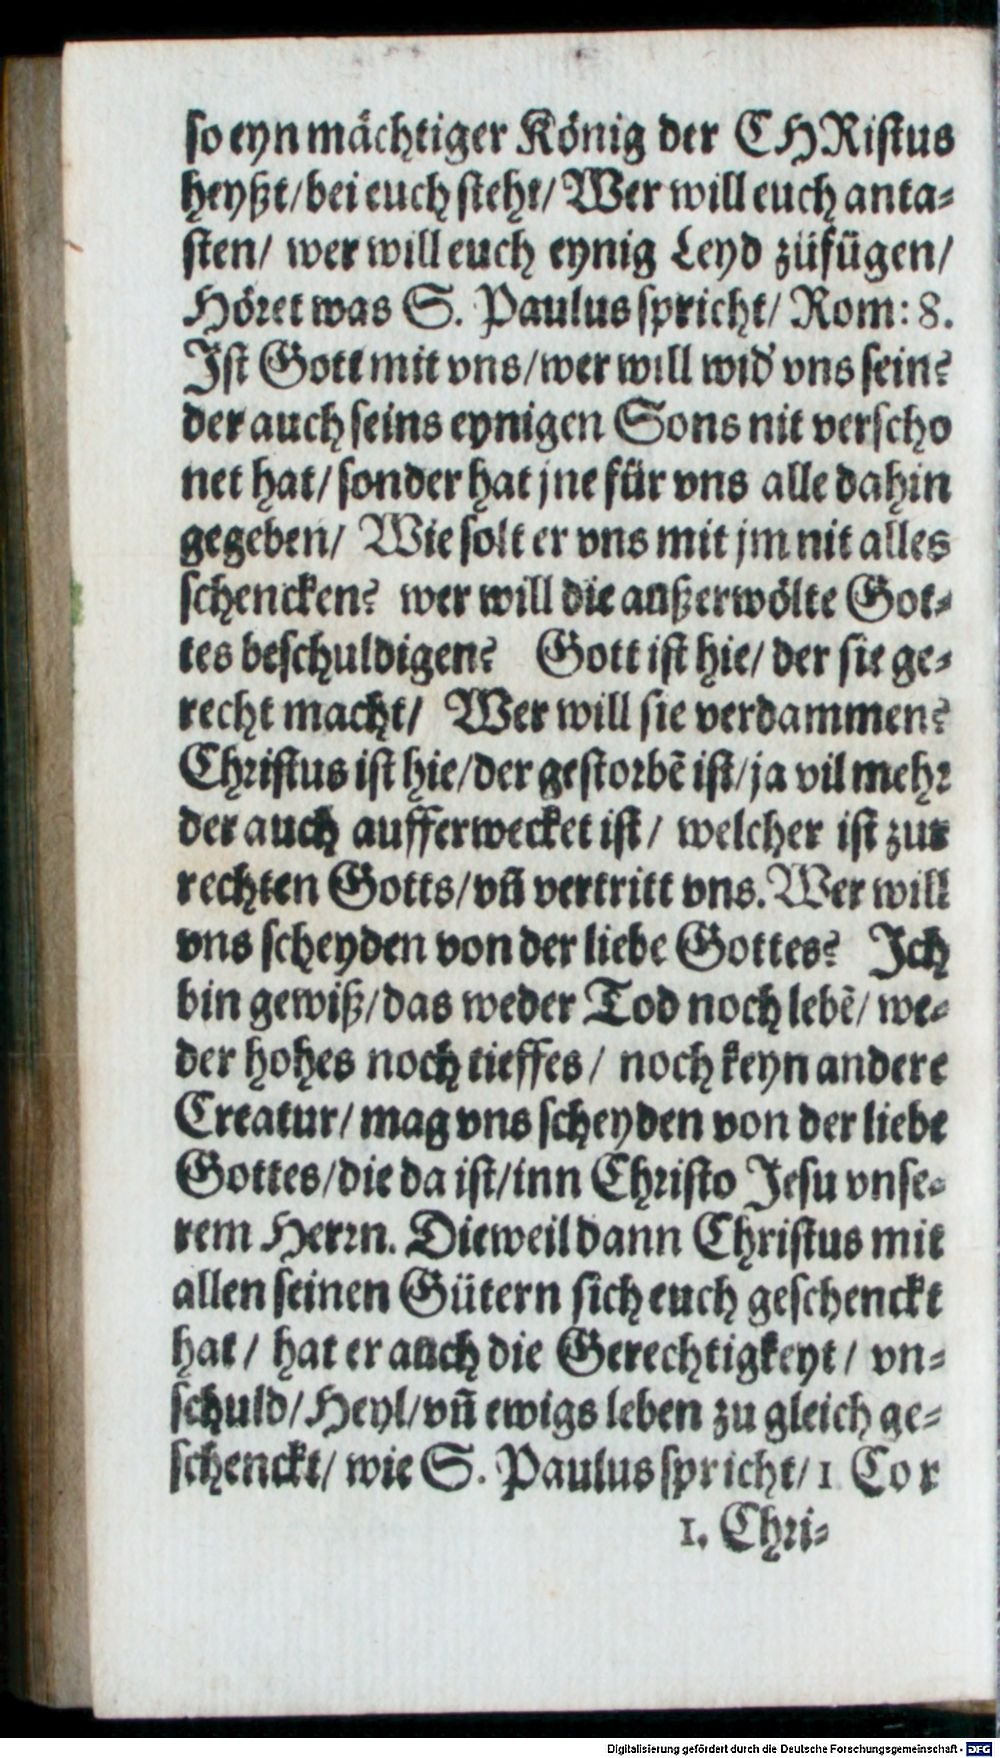 so eyn mächtiger König der CHRistus
heyßt/bei euch steht/ Wer will euch anta⸗
sten/ wer will euch eynig Leyd zufügen/
Höret was S. Paulus spricht/ Rom: 8.
Ist Gott mit vns/wer will wid' vns sein?
der auch seins eynigen Sons nit verscho
net hat/ sonder hat jne für vns alle dahin
gegeben/ Wie solt er vns mit jm nit alles
schencken? wer will die außerwölte Got⸗
tes beschuldigen? Gott ist hie/ der sie ge⸗
recht macht/ Wer will sie verdammen?
Christus ist hie/der gestorbẽ ist/ja vil mehr
der auch aufferwecket ist/ welcher ist zur
rechten Gotts/vñ vertritt vns. Wer will
vns scheyden von der liebe Gottes? Ich
bin gewiß/das weder Tod noch lebẽ/ we⸗
der hohes noch tieffes/ noch keyn andere
Creatur/ mag vns scheyden von der liebe
Gottes/die da ist/inn Christo Jesu vnse⸗
rem Herrn. Dieweil dann Christus mit
allen seinen Gütern sich euch geschenckt
hat/ hat er auch die Gerechtigkeyt/ vn⸗
schuld/Heyl/vñ ewigs leben zu gleich ge⸗
schenckt/ wie S. Paulus spricht/1 Cor
1. Chri⸗
Digitalisierung gefördert durch die Deutsche Forschungsgemeinschaft - DFG